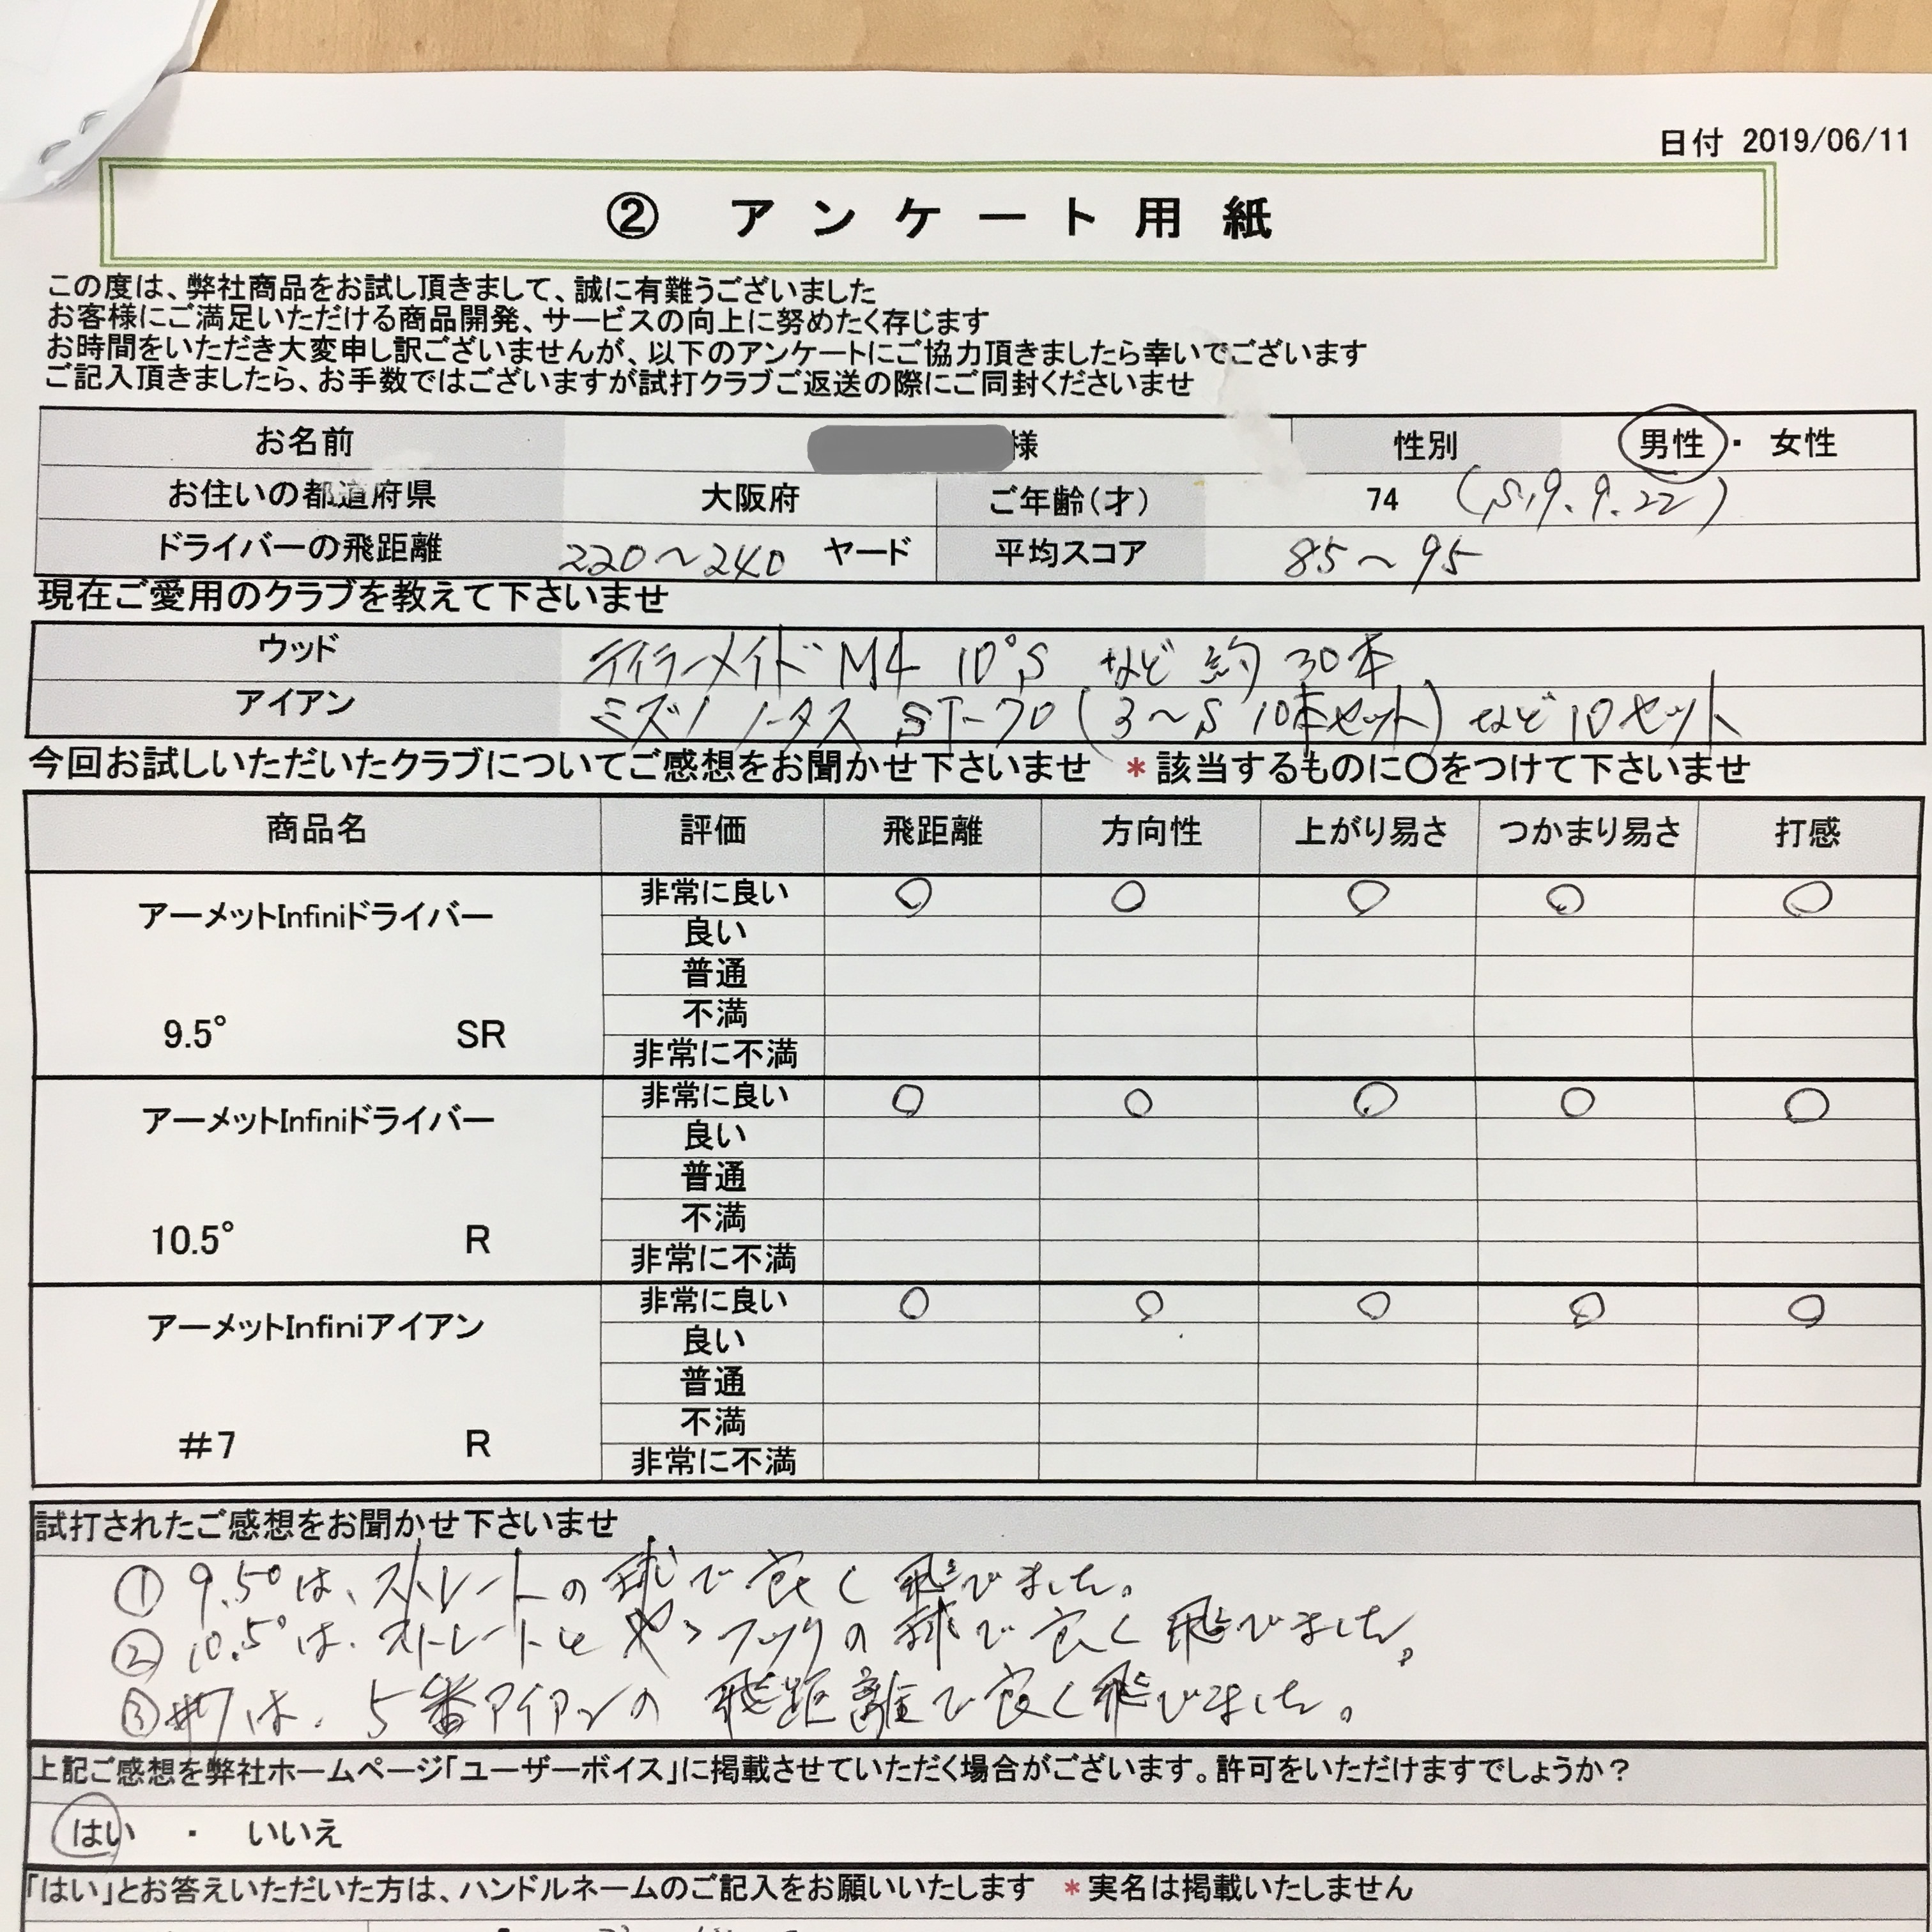 日付 2019/06/11
② アンケート用紙
この度は、弊社商品をお試し頂きまして、誠に有難うございました
お客様にご満足いただける商品開発、サービスの向上に努めたく存じます
お時間をいただき大変申し訳ございませんが、以下のアンケートにご協力頂きましたら幸いでございます
ご記入頂きましたら、お手数ではございますが試打クラブご返送の際にご同封くださいませ
お名前 様 性別 男性 ・ 女性
お住いの都道府県 大阪府 ご年齢(才) 74 (S19.9.22)
ドライバーの飛距離 220〜240 ヤード 平均スコア 85〜95
現在ご愛用のクラブを教えて下さいませ
ウッド テイラーメイド M4 10°S など 約30本
アイアン ミズノ ノータス ST-70 (3〜S 10本セット) など10セット
今回お試しいただいたクラブについてご感想をお聞かせ下さいませ *該当するものに〇をつけて下さいませ
商品名 評価 飛距離 方向性 上がり易さ つかまり易さ 打感
アーメットInfiniドライバー 非常に良い ○ ○ ○ ○ ○
良い
普通
9.5° SR 不満
非常に不満
アーメットInfiniドライバー 非常に良い ○ ○ ○ ○ ○
良い
普通
10.5° R 不満
非常に不満
アーメットInfiniアイアン 非常に良い ○ ○ ○ ○ ○
良い
普通
#7 R 不満
非常に不満
試打されたご感想をお聞かせ下さいませ
① 9.5°は、ストレートの球で良く飛びました。
② 10.5°は、ストレートとやゝフックの球で良く飛びました。
③ #7は、5番アイアンの飛距離で良く飛びました。
上記ご感想を弊社ホームページ「ユーザーボイス」に掲載させていただく場合がございます。許可をいただけますでしょうか?
はい ・ いいえ
「はい」とお答えいただいた方は、ハンドルネームのご記入をお願いいたします *実名は掲載いたしません